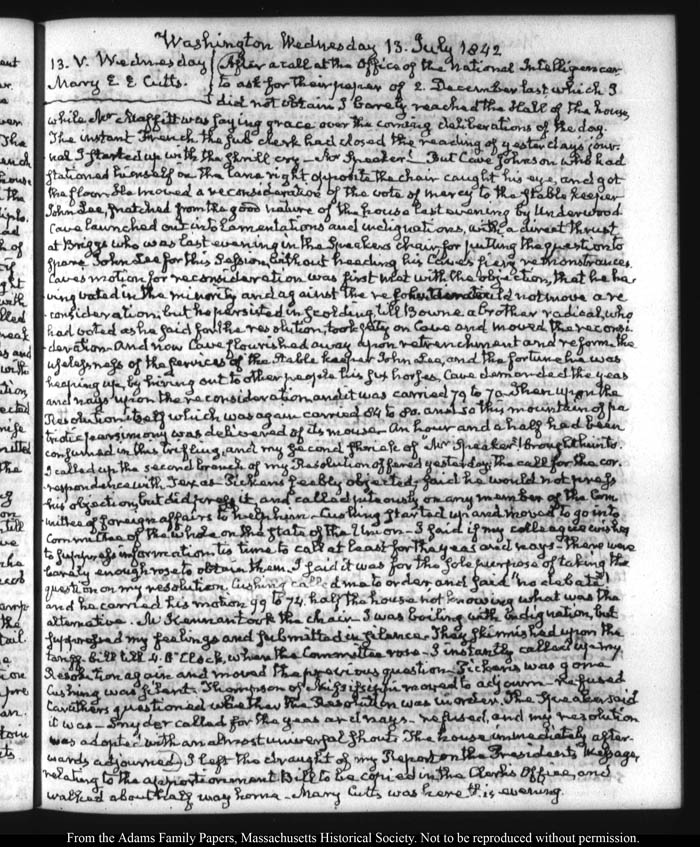 Washington Wednesday 13. July 1842
13. V. Wednesday
Mary E. E. Cutts.
After a call at the Office of the National Intelligencer
to ask for their paper of 2. December last which I
did not obtain I barely reached the Hall of the house
while Mr Maffitt was saying grace over the coming deliberations of the day.
The instant French the sub clerk had closed the reading of yesterdays jour-
nal I started up with the shrill cry—Mr Speaker! But Cave Johnson who had
stationed himself on the lane right opposite the chair caught his eye, and got
the floor. He moved a reconsideration of the vote of mercy to the stable keeper
John Lee, snatched from the good nature of the house last evening by Underwood.
Cave launched out into lamentations and indignations, with a direct thrust
at Briggs who was last evening in the Speakers chair for putting the question to
spare John Lee for this Session, without heeding his Caves fiery remonstrances.
Caves motion for reconsideration was first met with the objection, that he ha-
ving voted in the minority and against the resolution could not move a re-
consideration; but he persisted in scolding, till Bowne a brother radical, who
had voted as he said for the resolution, took pity on Cave and moved the reconsi-
deration. And now Cave flourished away upon retrenchment and reform the
uselessness of the services of the stable keeper John Lee, and the fortune he was
heaping up, by hiring out to other people his six horses. Cave demanded the yeas
and nays upon the reconsideration and it was carried 79 to 70. Then upon the
Resolution itself which was again carried 84 to 80. and so this mountain of pa-
triotic parsimony was delivered of its mouse. An hour and a half had been
consumed in this trifling, and my second shriek of "Mr Speaker"! brought him to.
I called up the second branch of my Resolution offered yesterday. The call for the cor-
respondence with Texas. Pickens feebly objected, said he would not press
his objection, but did press it, and called piteously on any member of the Com-
mittee of foreign affairs to help him. Cushing started up and moved to go into
Committee of the whole on the state of the Union. I said if my colleague wishes
to suppress information, tis time to call at least for the yeas and nays. There were
barely enough rose to obtain them. I said it was for the sole purpose of taking the
question on my resolution. Cushing called me to order and said "no debate"!
and he carried his motion 99 to 74. half the house not knowing what was the
alternative. Mr Kennan took the chair. I was boiling with indignation, but
suppressed my feelings and submitted in silence. They skirmished upon the
tariff-bill till 4. O'Clock, when the Committee rose. I instantly called up my
Resolution again and moved the previous question. Pickens was gone
Cushing was silent. Thompson of Mississippi moved to adjourn. Refused
Caruthers questioned whether the Resolution was in order. The Speaker said
it was. Snyder called for the yeas and nays—refused, and my resolution
was adopted with an almost universal shout. The house immediately after-
wards adjourned. I left the draught of my Report on the Presidents Message,
relating to the apportionment Bill to be copied in the Clerks Office, and
walked about half way home. Mary Cutts was here this evening.
From the Adams Family Papers, Massachusetts Historical Society. Not to be reproduced without permission.